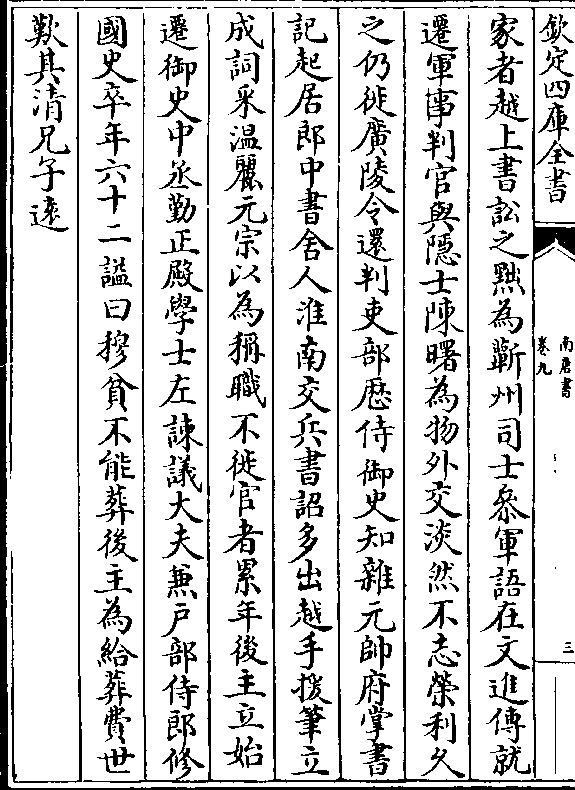 欽定四庫全書
南唐書
卷九
三
家者越上書訟之黜為蘄州司士叅軍語在文進傳就
遷軍事判官與隱士陳曙為物外交淡然不志榮利久
之仍徙廣陵令還判吏部歴侍御史知雜元帥府掌書
記起居郎中書舍人淮南交兵書詔多出越手援筆立
成詞采温麗元宗以為稱職不徙官者累年後主立始
遷御史中丞勤正殿學士左諫議大夫兼户部侍郎修
國史卒年六十二謚曰穆貧不能葬後主為給葬費世
歎其清兄子逺